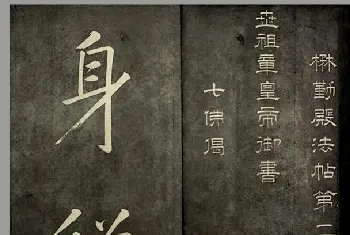 懋勤殿法帖第一
世祖章皇帝御書
七佛偈
身